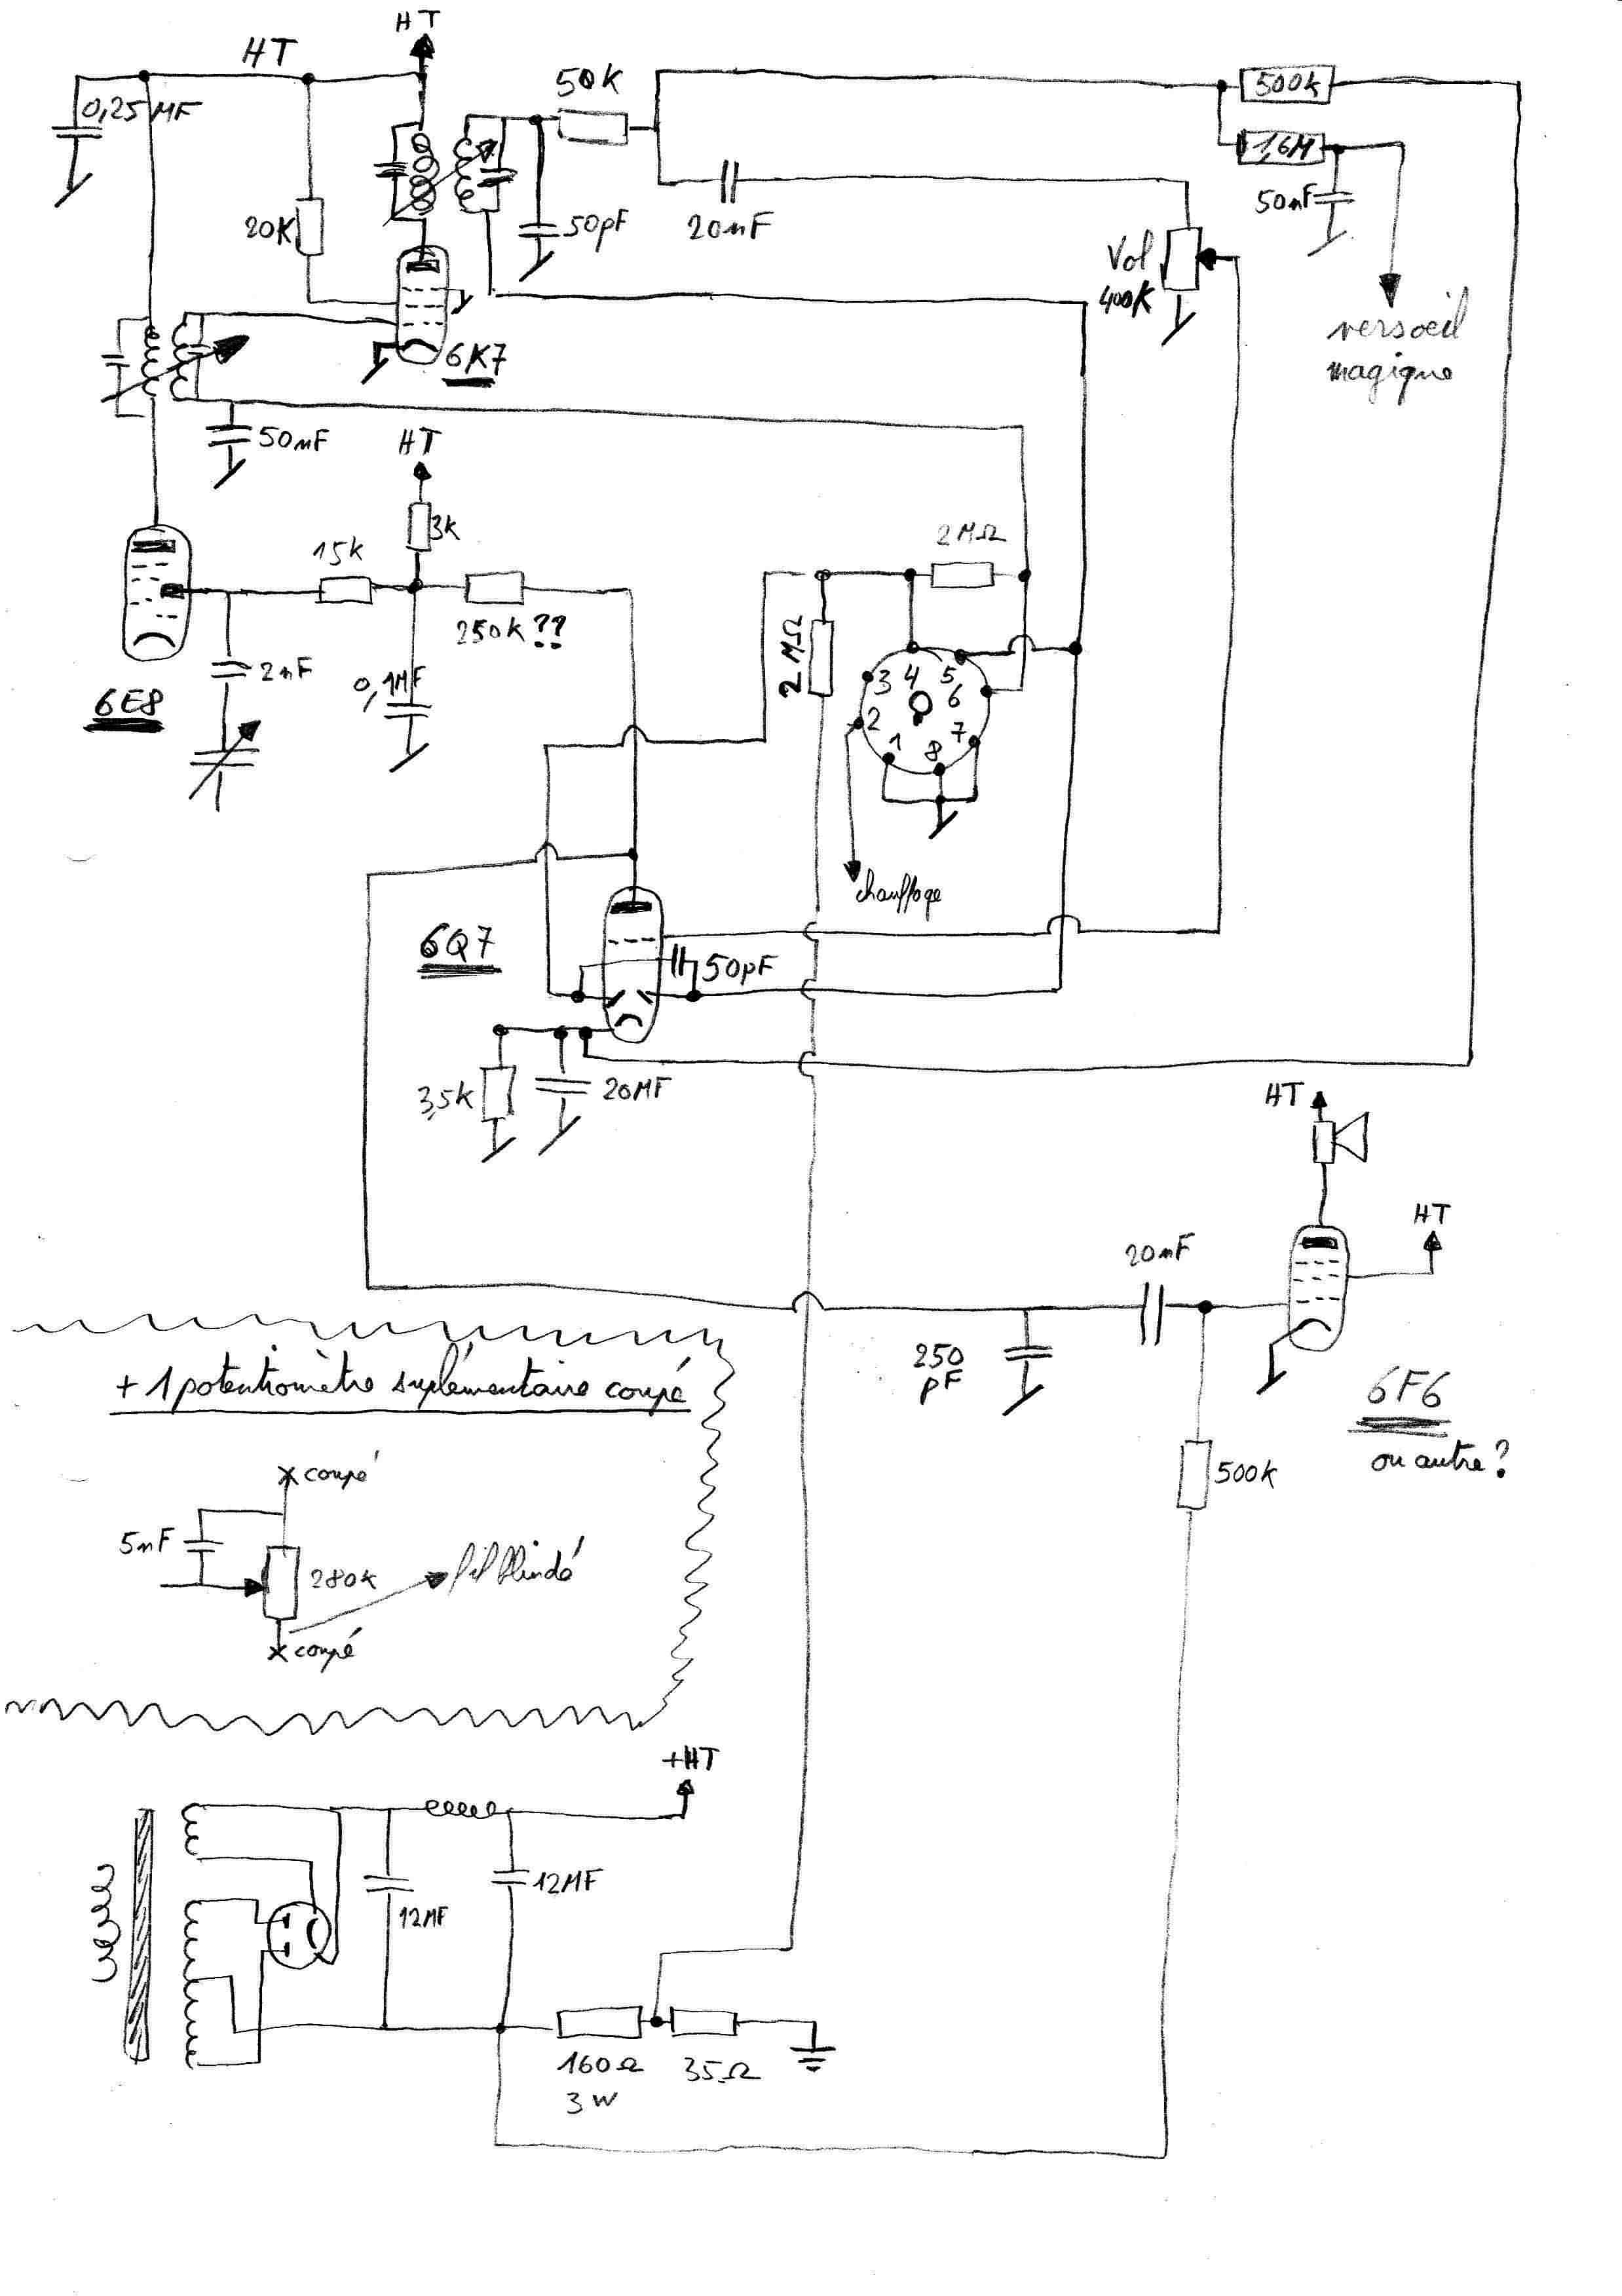 HT
HT
0,25 MF
50k
500k
1,6M
50nF
20K
50pF
20nF
Vol
400K
vers oeil
magique
6K7
50nF
HT
3k
15k
250k??
2nF
0,1MF
6E8
2MΩ
2 MΩ
3 4 5
6
2
1 8 7
chauffage
6Q7
50pF
3,5k
20MF
HT
HT
20nF
250
pF
6F6
ou autre?
500k
+ 1 potentiomètre suplémentaire coupé
coupé
5nF
280k
fil blindé
coupé
+HT
12MF
12MF
160Ω
3W
35Ω